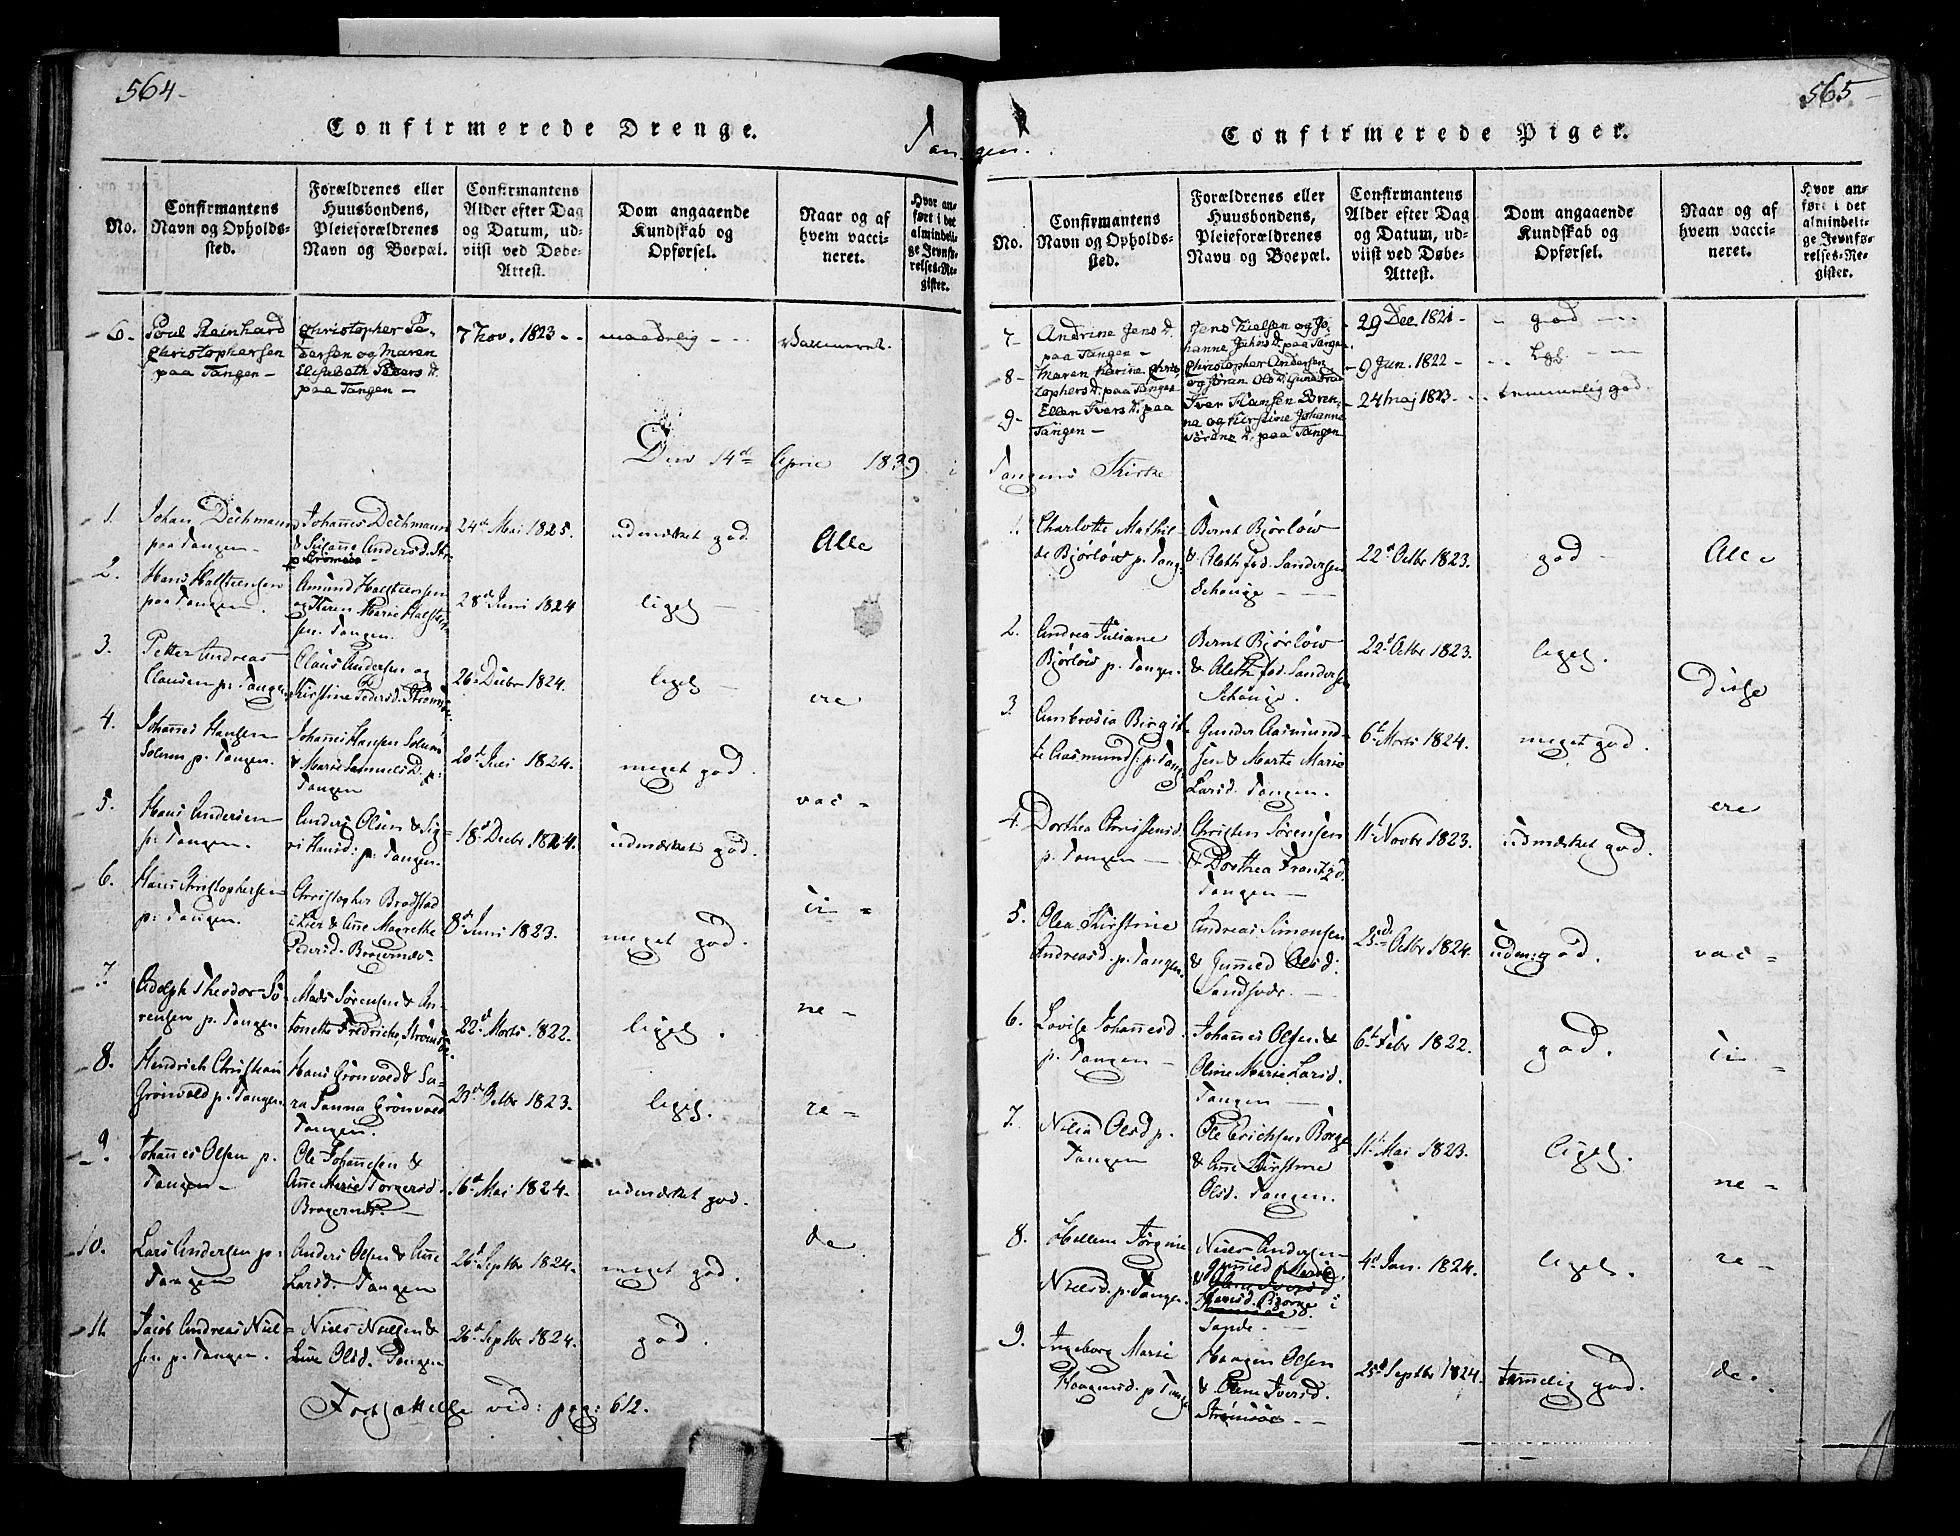 564-
Confirmerede Drenge.
Tan
No.
Confirmantens
Navn og Opholds-
sted.
Forældrenes eller
Huusbondens,
Pleieforældrenes
Navn og Boepæl.
Confirmantens
Alder efter Dag
og Datum, ud-
viist ved Døbe-
Attest.
Dom angaaende
Kundskab og
Opførsel.
Naar og af
hvem vacci-
neret.
Hvor an-
ført i det
almindeli-
ge Jevnfø-
relses-Re-
gister.
6.
Poul Reinhard
Christophersen
paa Tangen -
Christopher Pe-
dersen og Maren
Elisabeth Peders D.
paa Tangen -
7 Nov. 1823 - -
maadelig - -
Vaccineret.
Den 14de April 1839. i
1.
Johan Dechmann
paa Tangen -
Johannes Dechmann
& Susanne Andersd.
24de Mai 1825.
udmærket god
Alle
2.
Hans Halsteensen
paa Tangen.
Amund Halsteensen
og Karen Marie Halsteen-
sen. Tangen.
28de Juni 1824
ligel.
3.
Petter Andreas
Clausen p: Tangen
Claus Andersen og
Kirstine Pedersd. Strømsø.
26de Decbr 1824.
ligel -
ere
4.
Johannes Hansen
Solum p. Tangen.
Johannes Hansen Solum
& Marie Samuelsd. p:
Tangen
20de Juli 1824.
meget god.
5.
Hans Andersen
p: Tangen.
Anders Olsen & Sig-
ri Hansd: p: Tangen.
18de Decbr 1824.
udmærket god.
vac -
6.
Hans Christophersen
p: Tangen.
Christopher Brodstad
i Lier & Ane Magrethe
Pedersd. Bragernæs.
8de Juni 1823.
meget god.
ci -
7.
Adolph Theodor Sø-
rensen p. Tangen
Mads Sørensen & An-
tonette Fredriche, Strømsø.
22de Marts 1822.
ligel.
ne -
8.
Hendrich Christian
Grønvold p. Tangen.
Hans Grønvold & Sa-
ra Tanna Grønvold
Tangen.
23de Octbr 1823.
ligel.
re -
9.
Johannes Olsen p.
Tangen -
Ole Johannesen &
Ane Marie Torgersd.
Bragernæs -
16de Mai 1824.
udmærket god.
10.
Lars Andersen p:
Tangen
Anders Olsen & Ane
Larsd. Tangen
26de Septbr 1824.
meget god.
de
11.
Jacob Andreas Niel-
sen p. Tangen.
Niels Nielsen &
Live Olsd. Tangen
26de Septbr 1824.
god.
Fortsættelse vid: pag: 612.
565-
Confirmerede Piger.
gen.
No.
Confirmantens
Navn og Opholds-
sted.
Forældrenes eller
Huusbondens,
Pleieforældrenes
Navn og Boepæl.
Confirmantens
Alder efter Dag
og Datum, ud-
viist ved Døbe-
Attest.
Dom angaaende
Kundskab og
Opførsel.
Naar og af
hvem vacci-
neret.
Hvor an-
ført i det
almindeli-
ge Jevnfø-
relses-Re-
gister.
7-
Andrine Jens D.
paa Tangen -
Jens Nielsen og Jo-
hanne Jahns D. paa Tangen.
29 Dec 1821 -
god - -
8-
Maren Karine Chris-
tophers D. paa Tangen
Christopher Andersen
og Jøran Ols D.
9 Jun. 1822 -
Lgl. - -
9-
Ellen Ivers D. paa
Tangen -
Iver Hansen
og Kirstine Johanne
paa Tangen
24 Maj 1823 -
temmelig god.
Tangens Kirke
1.
Charlotte Mathil-
de Bjørlow p. Tang.
Bernt Bjørlow
& Aleth fød. Sandersen
Schouge - -
22de Octbr 1823.
god -
Alle
2.
Andrea Juliane
Bjørlow p. Tangen.
Bernt Bjørlow
& Aleth fød. Sandersen
Schouge.
22de Octbr 1823.
ligel.
Disse
3.
Ambrosia Birgit-
te Aasmunds: p. Tang
Gunder Aasmund-
sen & Marte Marie
Larsd. Tangen.
6te Marts 1824.
meget god.
ere
4.
Dorthea Christensd.
p. Tangen -
Christen Sørensen
& Dorthea Frantzd.
Tangen -
11te Novbr 1823.
udmærket god.
5.
Olea Kirstine
Andreasd. p. Tangen.
Andreas Simonsen
& Gunild Olsd.
Sandsvær. -
23de Octbr 1824.
udm: god.
vac -
6.
Lovise Johannesd.
p. Tangen -
Johannes Olsen &
Oline Marie Larsd.
Tangen -
6te Febr 1822.
god.
ci -
7.
Nilia Olsd p.
Tangen
Ole Erichsen Borge
& Ane Kirstine
Olsd. Tangen.
11te Mai 1823.
ligel.
ne -
8.
Hellene Jørgine
Nielsd. p. Tangen.
Niels Andersen
Gunild Marie
Hansd. Bjørge i
Sande. -
4de Jan. 1824.
ligel.
re -
9.
Ingeborg Marie
Haagensd. p Tange
Haagen Olsen
& Anne Iversd.
Strømsøe - -
25de Septbr 1824.
temmelig god.
de.